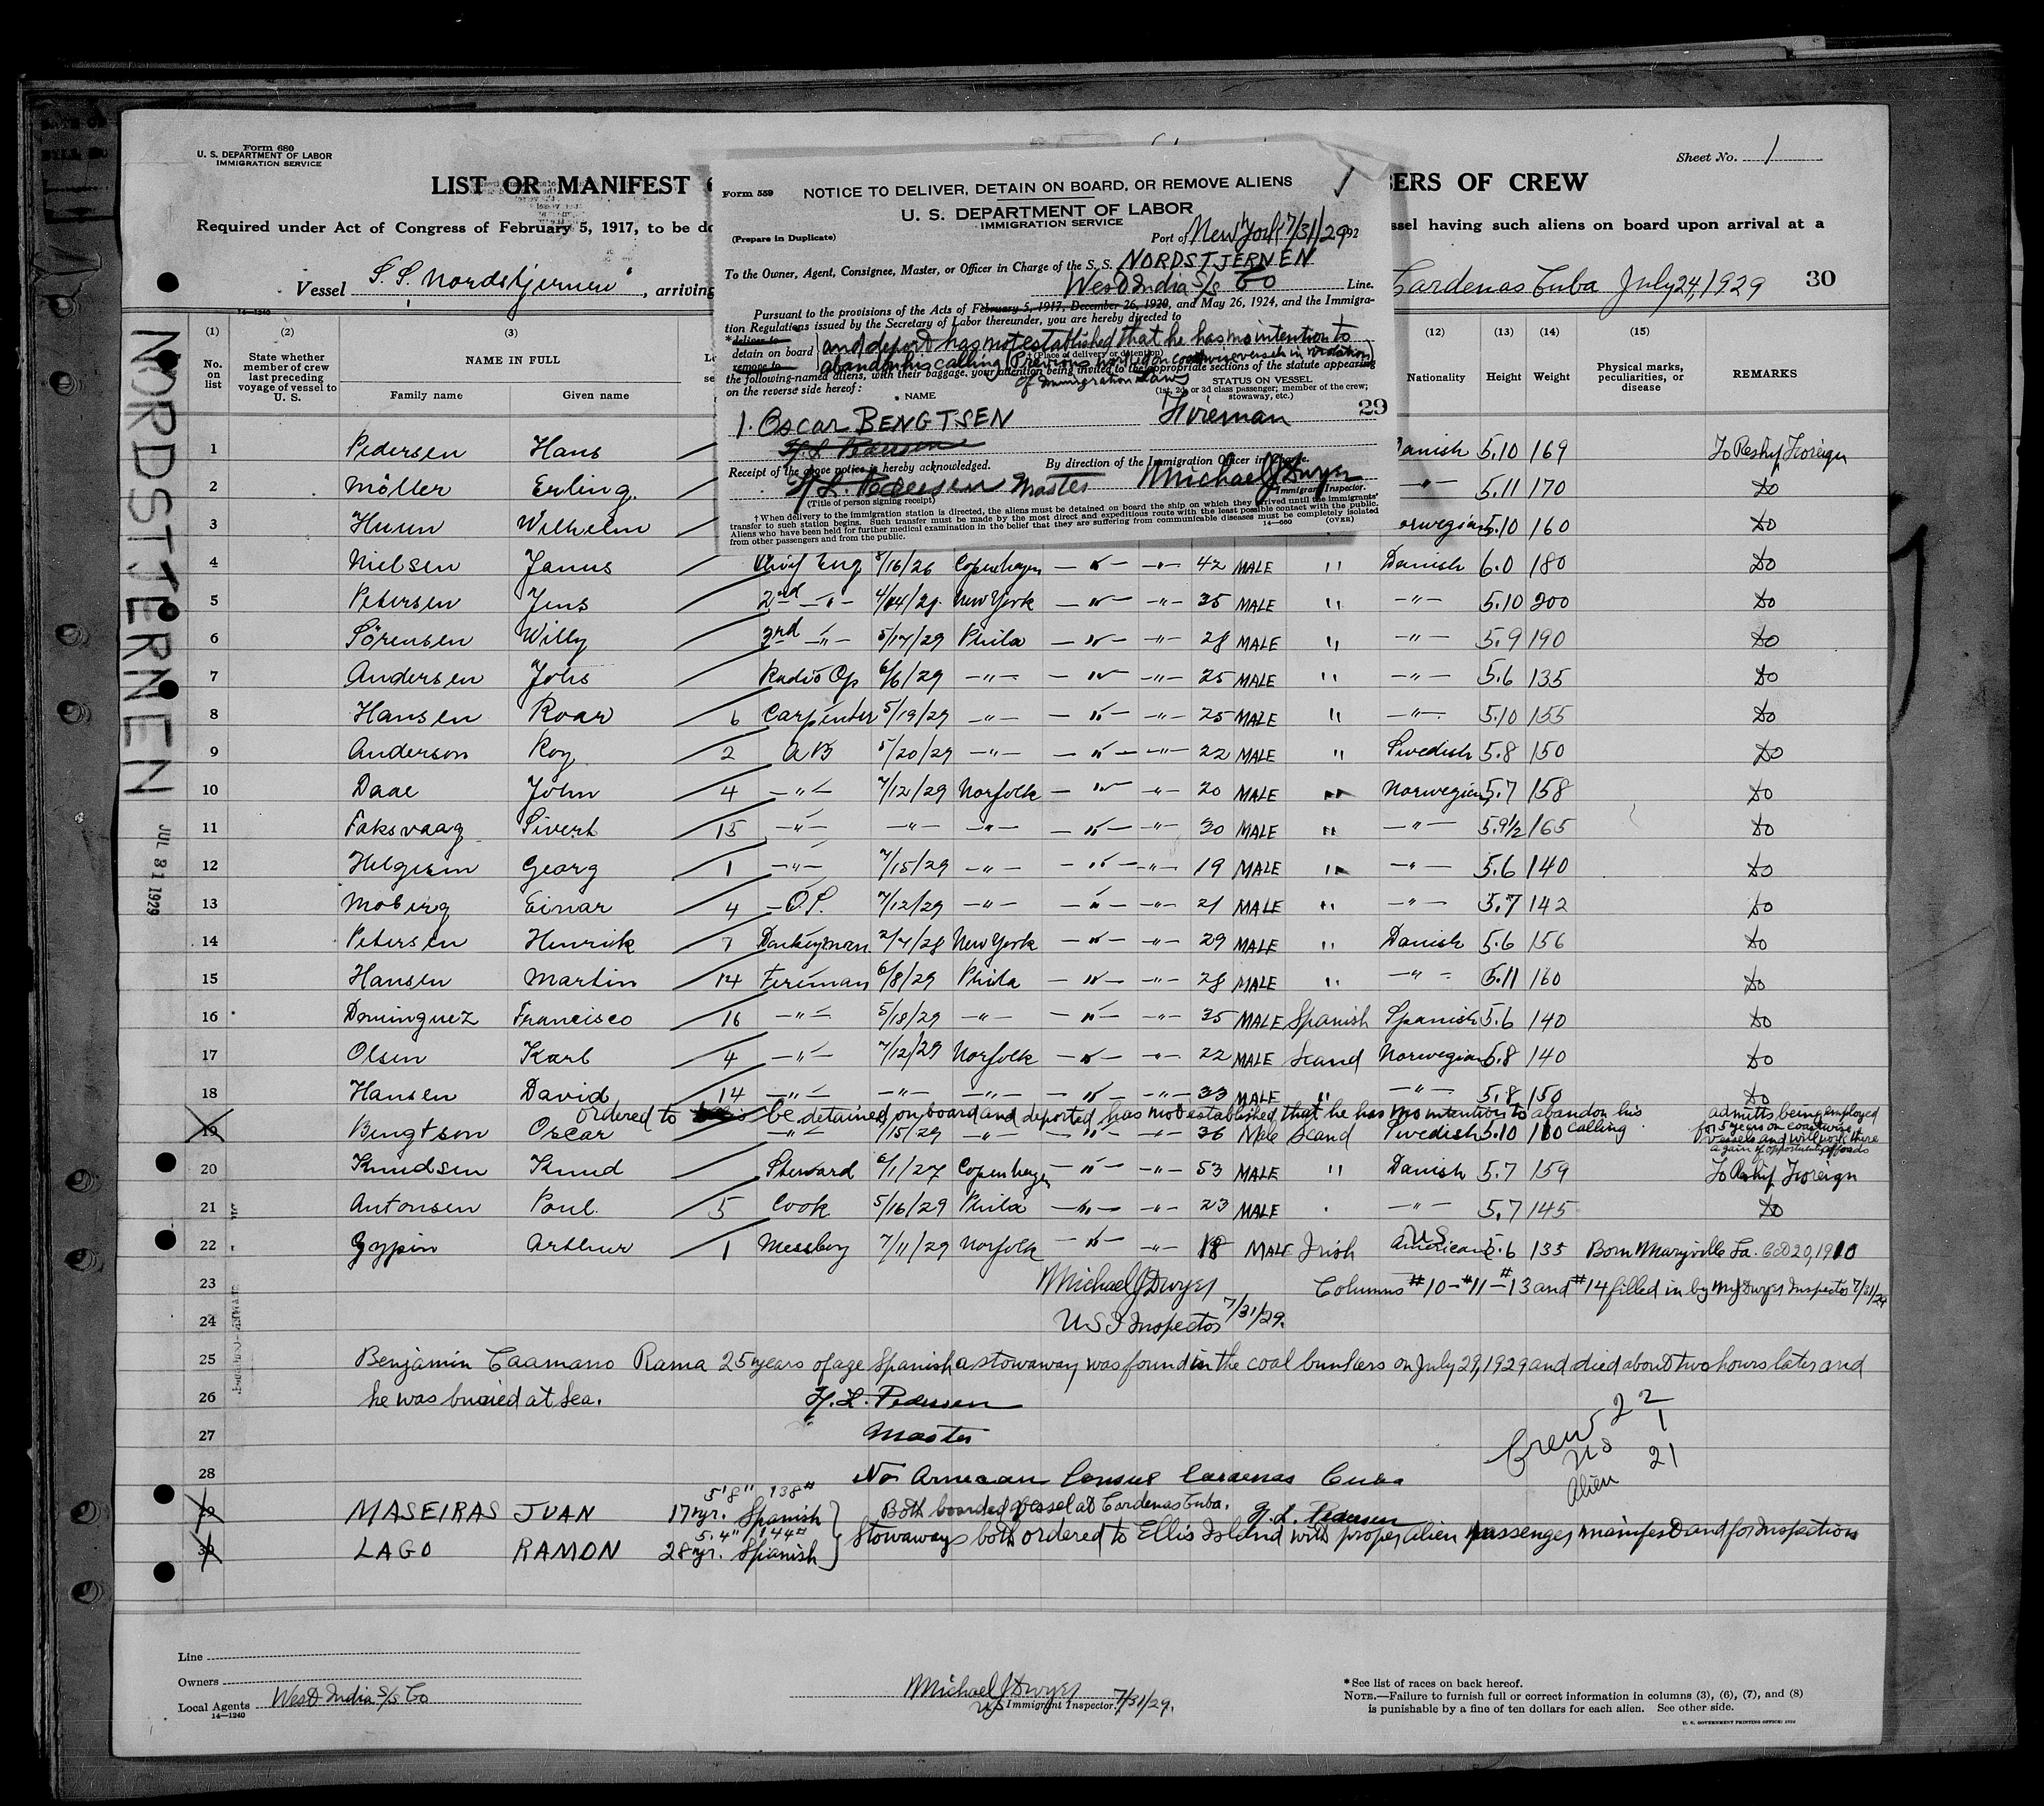 Form 680
U. S. DEPARTMENT OF LABOR
IMMIGRATION SERVICE
Sheet No. 1
LIST OR MANIFEST
BERS OF CREW
Required under Act of Congress of February 5, 1917, to be
ssel having such aliens on board upon arrival at a
Vessel S.S. Nordstjernen, arriving
Cardenas Cuba July 24, 1929 30
Form 559
NOTICE TO DELIVER, DETAIN ON BOARD, OR REMOVE ALIENS
U. S. DEPARTMENT OF LABOR
IMMIGRATION SERVICE
(Prepare in Duplicate)
Port of New York 7/31/29, 192
To the Owner, Agent, Consignee, Master, or Officer in Charge of the S. S. NORDSTJERNEN
West India S/S Co Line.
Pursuant to the provisions of the Acts of February 5, 1917, December 26, 1920, and May 26, 1924, and the Immigra-
tion Regulations issued by the Secretary of Labor thereunder, you are hereby directed to
*deliver to
detain on board and deport has not established that he has no intention to
remove to abandon his calling (Previous worked on coastwise vessels in violation
(Place of delivery or detention)
of Immigration Laws
the following-named aliens, with their baggage, your attention being invited to the appropriate sections of the statute appearing
on the reverse side hereof:
NAME
STATUS ON VESSEL
(1st, 2d, or 3d class passenger; member of the crew; stowaway, etc.)
1. OSCAR BENGTSEN Fireman 29
H. L. Pedersen
Receipt of the above notice is hereby acknowledged. By direction of the Immigration Officer in Charge.
H. L. Pedersen Master Michael J Dwyer
(Title of person signing receipt) Immigrant Inspector.
†When delivery to the immigration station is directed, the aliens must be detained on board the ship on which they arrived until the immigrants'
transfer to such station begins. Such transfer must be made by the most direct and expeditious route with the least possible contact with the public.
Aliens who have been held for further medical examination in the belief that they are suffering from communicable diseases must be completely isolated
from other passengers and from the public.
14—660 (OVER)
NORDSTJERNEN
JUL 31 1929
14—1240
(1) (2) (3) (12) (13) (14) (15)
No. on list
State whether member of crew last preceding voyage of vessel to U. S.
NAME IN FULL
Family name Given name
Nationality Height Weight Physical marks, peculiarities, or disease REMARKS
1 Pedersen Hans Danish 5.10 169 To Reship Foreign
2 Möller Erling —"— 5.11 170 Do
3 Wilhelm orwegian 5.10 160 Do
4 Nielsen Janus Chief Eng 8/16/26 Copenhagen —"— —"— 42 MALE " Danish 6.0 180 Do
5 Petersen Jens 2nd —"— New York —"— —"— 35 MALE " —"— 5.10 200 Do
6 Sörensen Willy 3rd —"— 5/17/29 Phila —"— —"— 28 MALE " —"— 5.9 190 Do
7 Andersen Johs Radio Op 6/6/29 —"— —"— —"— 25 MALE " —"— 5.6 135 Do
8 Hansen Roar 6 Carpenter 5/19/29 —"— —"— —"— 25 MALE " —"— 5.10 155 Do
9 Anderson Roy 2 AB 5/20/29 —"— —"— —"— 22 MALE " Swedish 5.8 150 Do
10 Daae John 4 —"— 7/12/29 Norfolk —"— —"— 20 MALE " Norwegian 5.7 158 Do
11 Faksvaag Sivert 15 —"— —"— —"— —"— —"— 30 MALE " —"— 5.9½ 165 Do
12 Helgesen Georg 1 —"— 7/15/29 —"— —"— —"— 19 MALE " —"— 5.6 140 Do
13 Moberg Einar 4 O.S. 7/12/29 —"— —"— —"— 21 MALE " —"— 5.7 142 Do
14 Petersen Henrick 7 Donkeyman 2/7/28 New York —"— —"— 29 MALE " Danish 5.6 156 Do
15 Hansen Martin 14 Fireman 6/8/29 Phila —"— —"— 28 MALE " —"— 5.11 160 Do
16 Dominguez Francisco 16 —"— 5/18/29 —"— —"— —"— 35 MALE Spanish Spanish 5.6 140 Do
17 Olsen Karl 4 —"— 7/12/29 Norfolk —"— —"— 22 MALE Scand Norwegian 5.8 140 Do
18 Hansen David 14 —"— —"— —"— —"— —"— 33 MALE " —"— 5.8 150 Do
ordered to be detained on board and deported has not established that he has no intention to abandon his calling
19 Bengtson Oscar —"— 7/15/29 —"— —"— —"— 36 Male Scand Swedish 5.10 160
admits being employed for 5 years on coastwise vessels and will work there again if opportunity affords
20 Knudsen Knud Steward 6/1/27 Copenhagen —"— —"— 53 MALE " Danish 5.7 159 To Reship Foreign
21 Antonsen Poul 5 Cook 5/16/29 Phila —"— —"— 23 MALE —"— 5.7 145 Do
22 Gypin Arthur 1 Messboy 7/11/29 Norfolk —"— —"— 18 MALE Irish U.S. American 5.6 135 Born Maryville La. 20, 1910
23 Michael J Dwyer Columns #10-#11-#13 and #14 filled in by M J Dwyer Inspector 7/31/29
24 U S I Inspector 7/31/29.
25 Benjamin Caamano Rama 25 years of age Spanish a stowaway was found in the coal bunkers on July 29, 1929 and died about two hours later and
26 he was buried at sea. H. L. Pedersen
27 Master
Crew 22
US 1
Alien 21
28 No American Consul Cardenas Cuba
29 MASEIRAS JUAN 17 yr. 5'8" 138# Spanish Both boarded vessel at Cardenas Cuba. H. L. Pedersen
30 LAGO RAMON 28 yr. 5.4" 144# Spanish Stowaways both ordered to Ellis Island with proper alien passenger manifest and for Inspection
Line
Owners
Local Agents West India S/S Co
14—1240
Michael J Dwyer
US Immigrant Inspector. 7/31/29.
*See list of races on back hereof.
NOTE.—Failure to furnish full or correct information in columns (3), (6), (7), and (8)
is punishable by a fine of ten dollars for each alien. See other side.